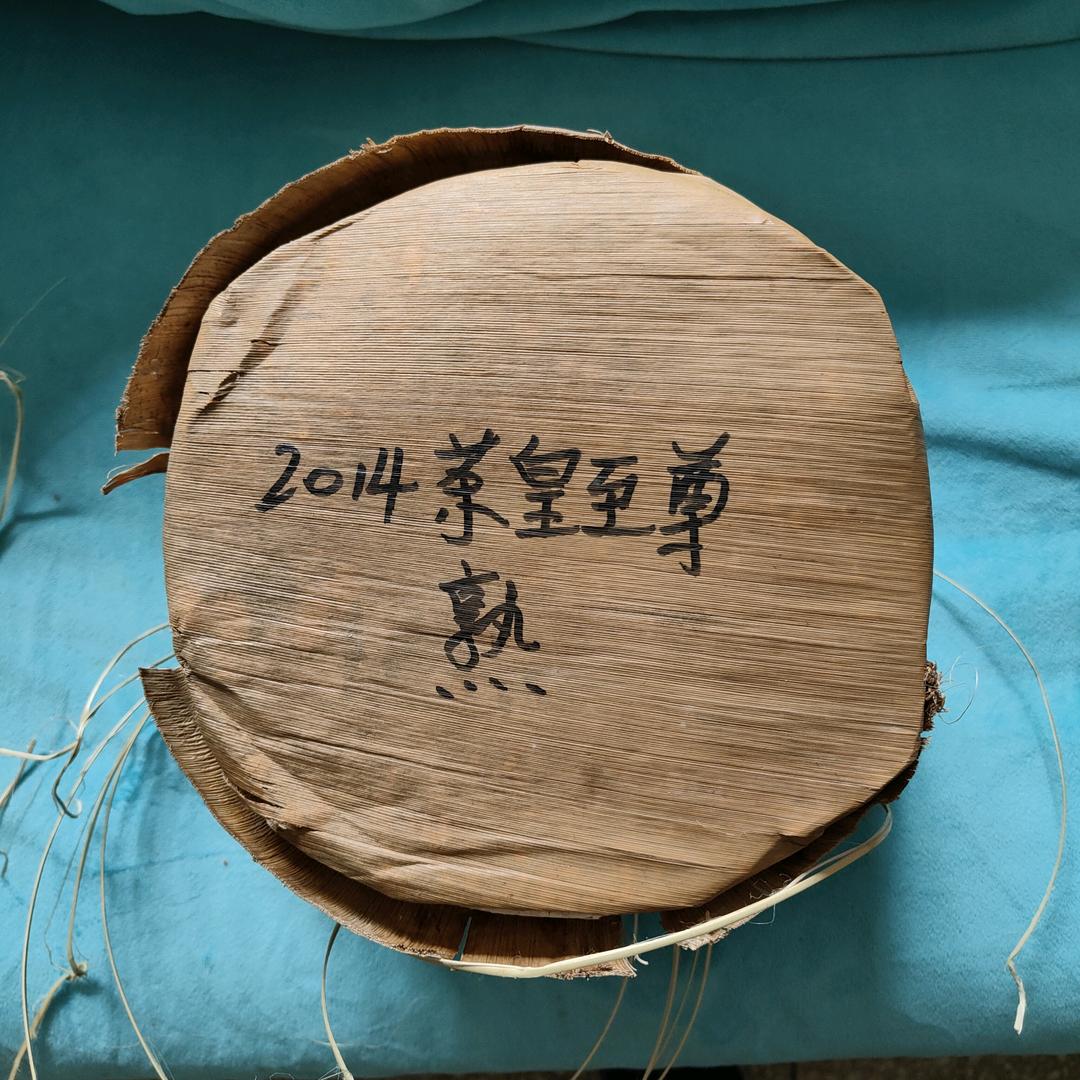 2014茶皇至尊
熟